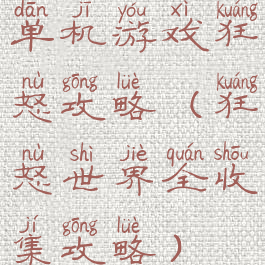 dān jī yóu xì kuáng
单机游戏狂
nù gōng lüè kuáng
怒攻略（狂
nù shì jiè quán shōu
怒世界全收
jí gōng lüè
集攻略）